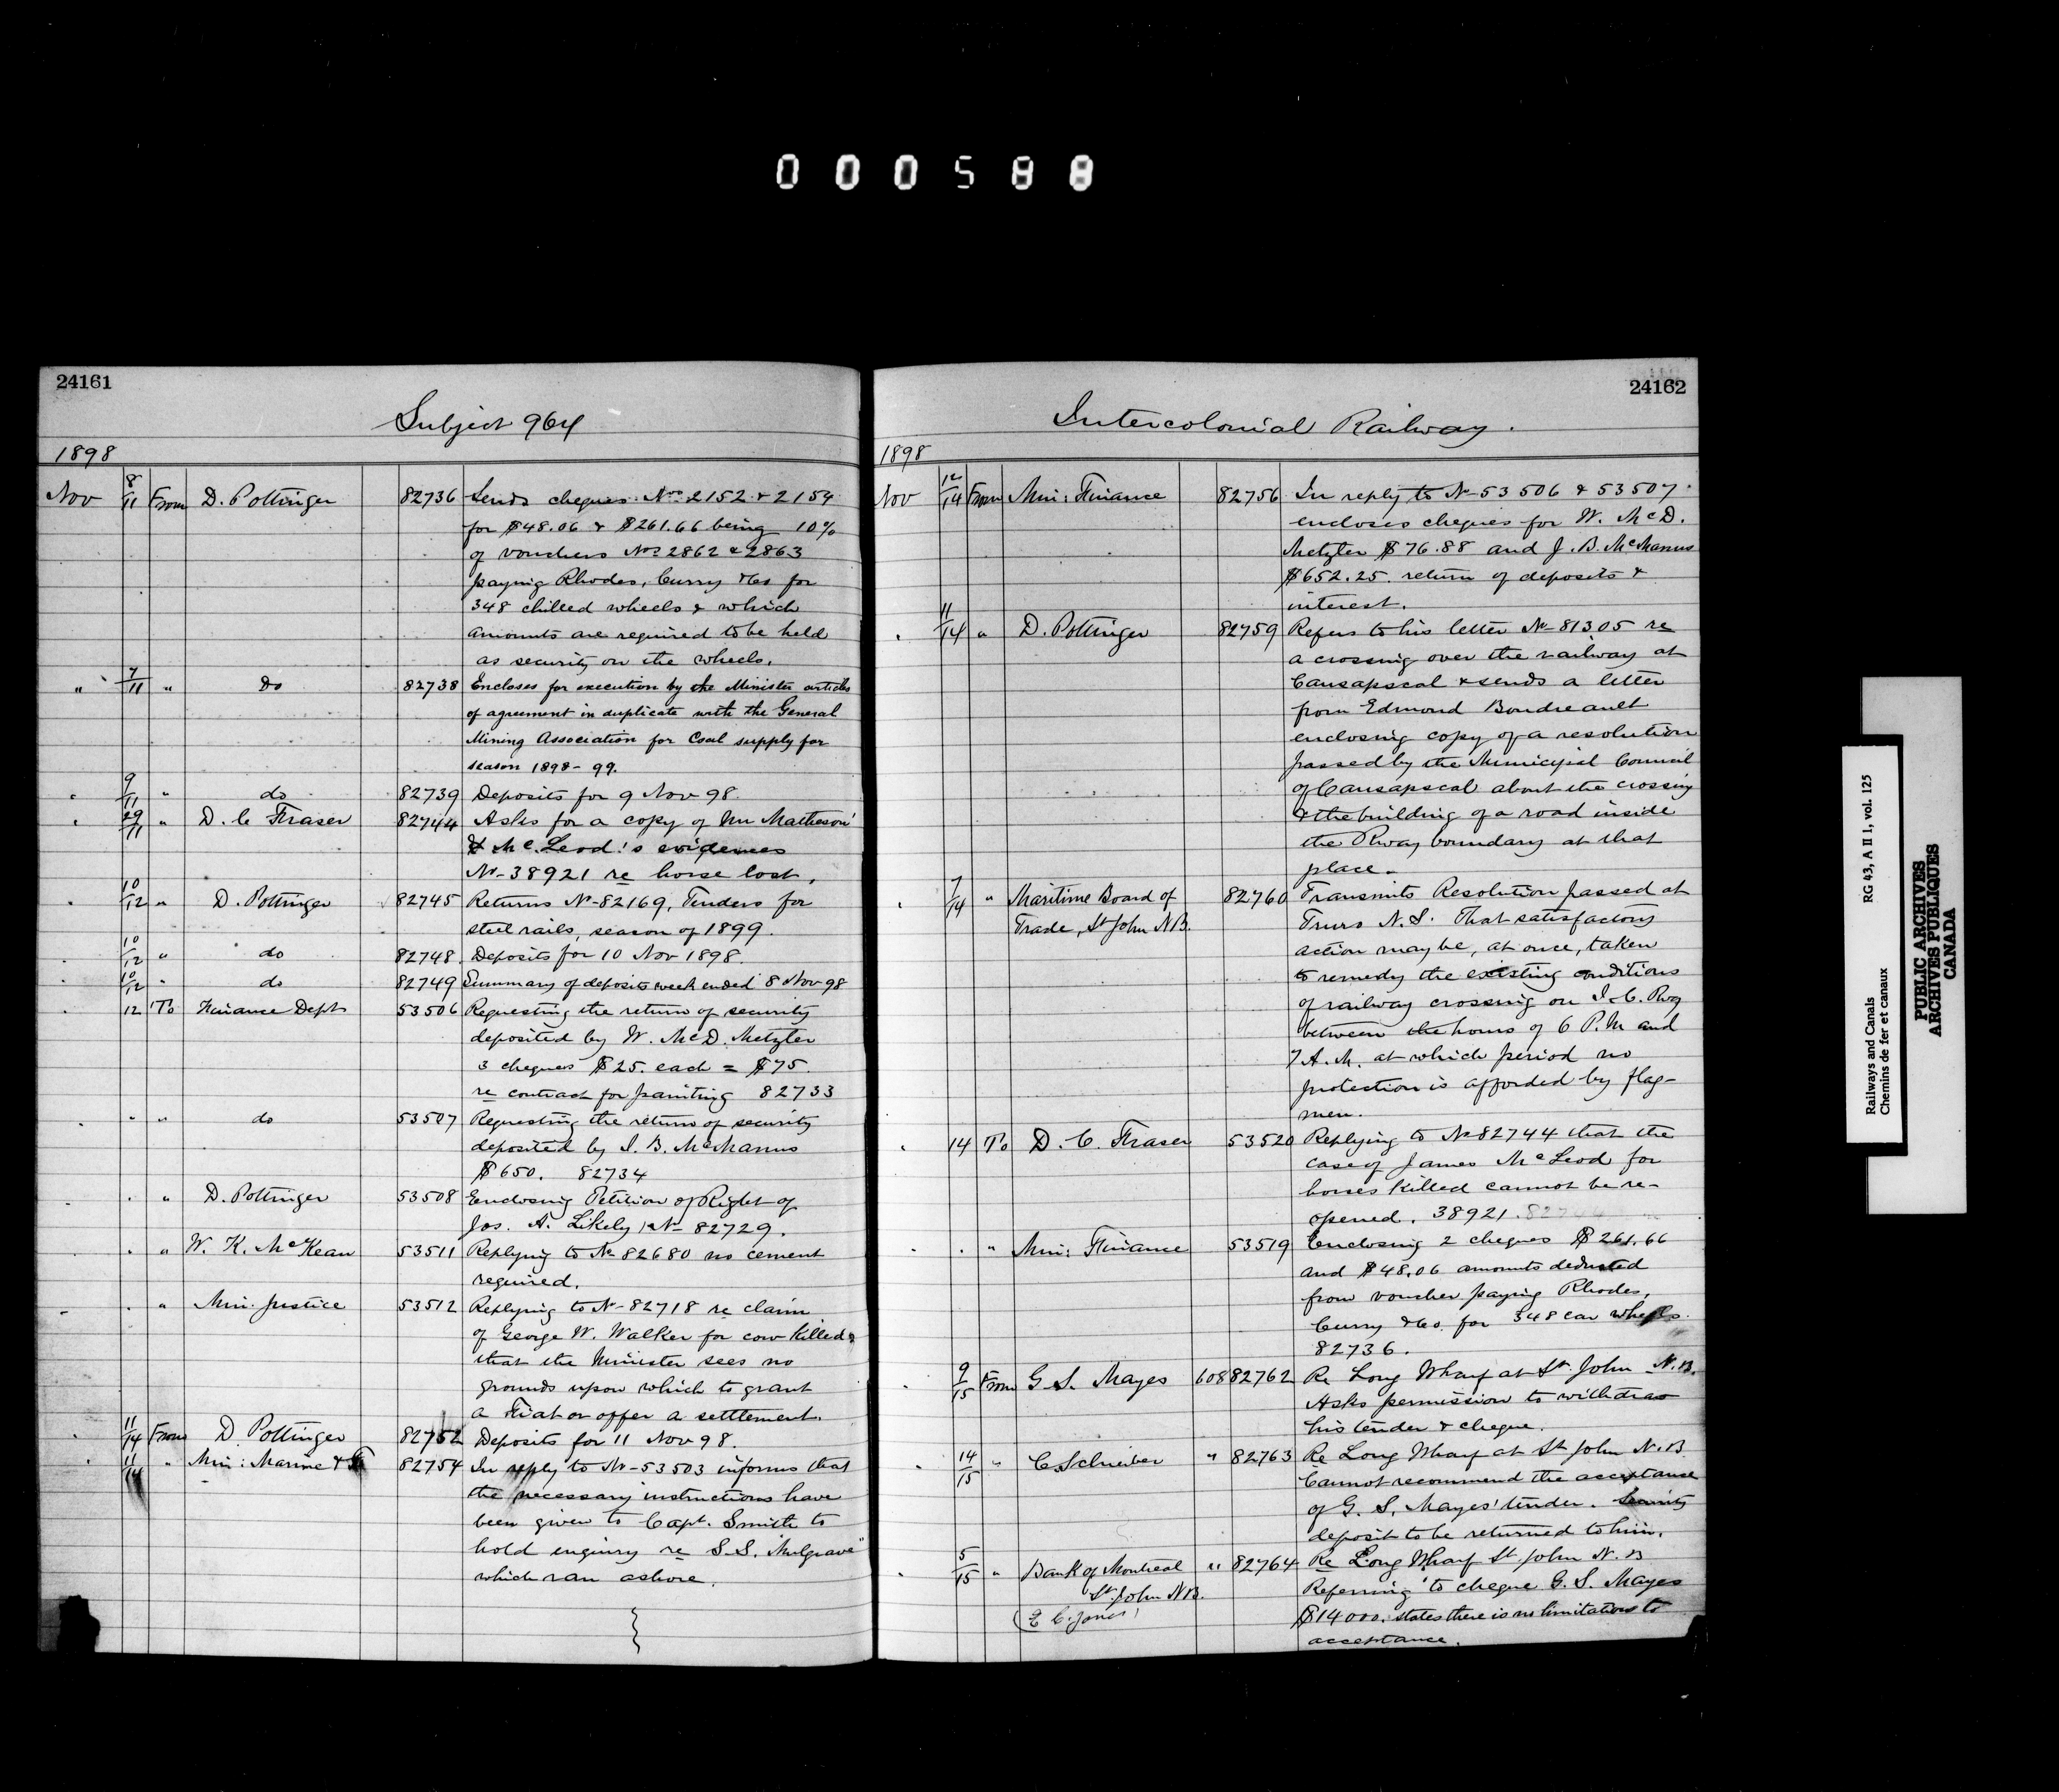 000588
24161
Subject 964
1898
Nov 8/11 From D. Pottinger 82736 Sends cheques Nos 2152 & 2154
for $48.06 & $261.66 being 10%
of vouchers Nos 2862 & 2863
paying Rhodes, Curry & Co for
348 chilled wheels & which
amounts are required to be held
as security on the wheels.
" 7/11 " do 82738 Encloses for execution by the Minister articles
of agreement in duplicate with the General
Mining Association for Coal supply for
season 1898-99.
" 9/11 " do 82739 Deposits for 9 Nov 98
" 29/11 " D. C Fraser 82744 Asks for a copy of Mr Matheson'
& McLeod's evidences
No 38921 re horse lost.
" 10/12 " D. Pottinger 82745 Returns No 82169, Tenders for
steel rails, season of 1899.
" 10/12 " do 82748 Deposits for 10 Nov 1898.
" 10/12 " do 82749 Summary of deposits week ended 8 Nov 98
" 12 To Finance Dept 53506 Requesting the return of security
deposited by W. McD. Metzler
3 cheques $25. each = $75.
re contract for painting 82733
" " " do 53507 Requesting the return of security
deposited by J. B. McManus
$650. 82734
" " " D. Pottinger 53508 Enclosing Petition of Right of
Jos. A. Likely No 82729.
" " " W. K. McKean 53511 Replying to No 82680 no cement
required.
" " " Min. Justice 53512 Replying to No 82718 re claim
of George W. Walker for cow killed &
that the Minister sees no
grounds upon which to grant
a Fiat or offer a settlement.
" 11/14 From D Pottinger 82752 Deposits for 11 Nov 98.
" 11/14 " Min: Marine & F 82754 In reply to No 53503 informs that
the necessary instructions have
been given to Capt. Smith to
hold enquiry re S.S. "Mulgrave"
which ran ashore.
24162
Intercolonial Railway.
1898
Nov 12/14 From Min: Finance 82756 In reply to No 53506 & 53507
encloses cheques for W. McD.
Metzler $76.88 and J. B. McManus
$652.25. return of deposits &
interest.
" 11/14 " D. Pottinger 82759 Refers to his letter No 81305 re
a crossing over the railway at
Causapscal & sends a letter
from Edmond Boudreault
enclosing copy of a resolution
passed by the Municipal Council
of Causapscal about the crossing
& the building of a road inside
the Rway boundary at that
place.
" 7/14 " Maritime Board of 82760 Transmits Resolution passed at
Trade, St John N.B. Truro N.S. That satisfactory
action may be, at once, taken
to remedy the existing conditions
of railway crossing on I.C. Rwy
between the hours of 6 P.M and
7 A.M. at which period no
protection is afforded by flag-
men.
" 14 To D. C. Fraser 53520 Replying to No 82744 that the
case of James McLeod for
horses killed cannot be re-
opened. 38921. 82744
" " " Min: Finance 53519 Enclosing 2 cheques $261.66
and $48.06 amounts deducted
from voucher paying Rhodes,
Curry & Co. for 348 car wheels.
82736.
" 9/15 From G. S. Mayes 608 82762 Re Long Wharf at St. John N.B.
Asks permission to withdraw
his tender & cheque.
" 14/15 " C. Schreiber " 82763 Re Long Wharf at St John N.B
Cannot recommend the acceptance
of G. S. Mayes' tender. Security
deposit to be returned to him.
" 5/15 " Bank of Montreal " 82764 Re Long Wharf St. John N.B
St. John N.B. Referring to cheque G. S. Mayes
(E C. Jones) $14000. states there is no limitations to
acceptance.
Railways and Canals RG 43, A II 1, vol. 125
Chemins de fer et canaux
PUBLIC ARCHIVES
ARCHIVES PUBLIQUES
CANADA